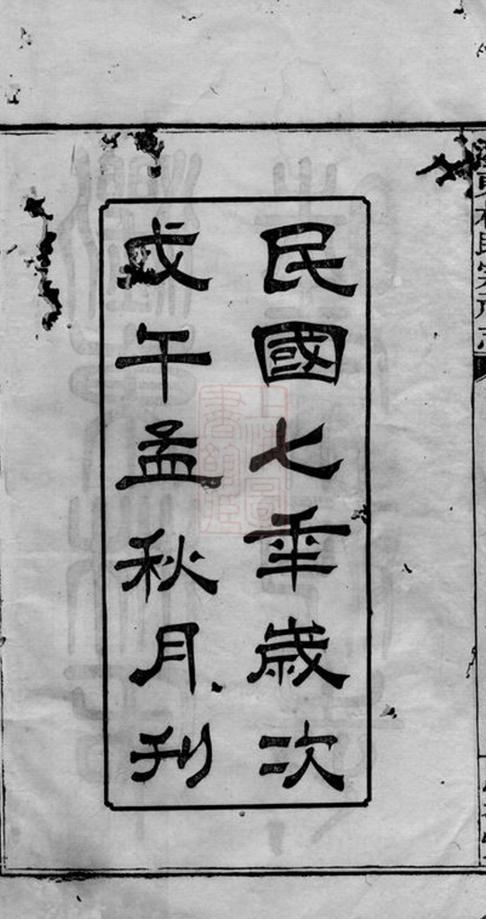 民國七年歲次
戊午孟秋月刊